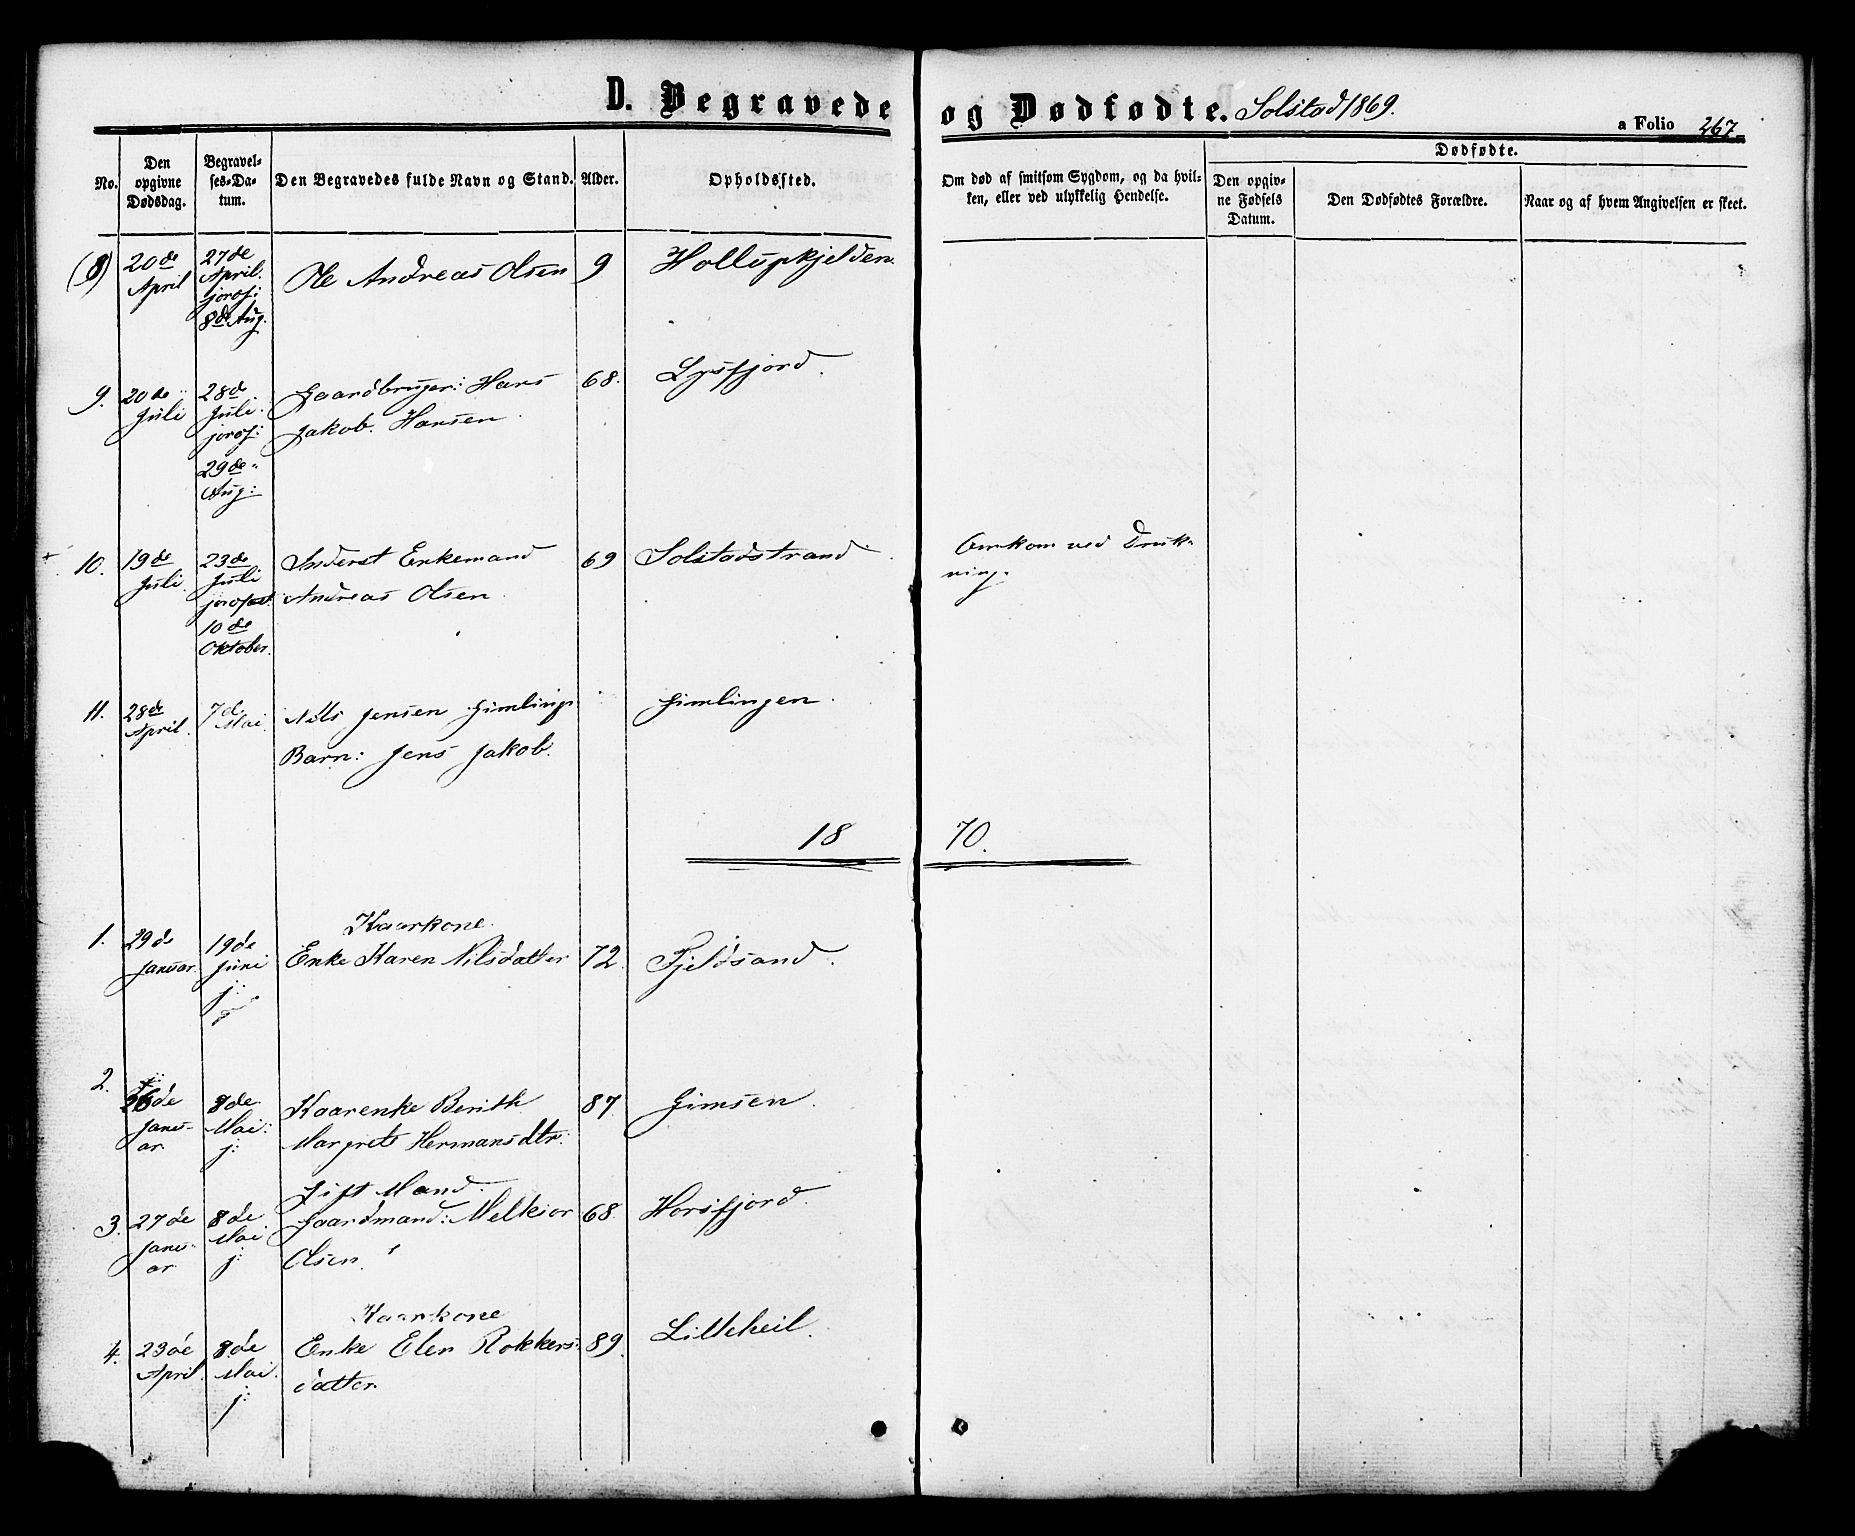 D. Begravede og Dødfødte. Solstad 1869.
a Folio 267
No.
Den opgivne Dødsdag.
Begravel-
ses-Da-
tum.
Den Begravedes fulde Navn og Stand.
Alder.
Opholdssted.
Om død af smitsom Sygdom, og da hvil-
ken, eller ved ulykkelig Hendelse.
Dødfødte.
Den opgiv-
ne Fødsels
Datum.
Den Dødfødtes Forældre.
Naar og af hvem Angivelsen er skeet.
(8) 20de April
27de April. jordf: 8de Aug.
Ole Andreas Olsen
9
9. 20de Juli
28de Juli. jordf: 29de Aug:
Gaardbruger: Hans
Jakob. Hansen
68.
Lysfjord.
10. 19de Juli
23de Juli 10de Oktober.
Inderst Enkemand
Andreas Olsen.
69
Solstadstrand.
Omkom ved Druk-
ning.
11. 28de April.
7de Mai
Nils Jensen Gimlings
Barn: Jens Jakob.
Gimlingen.
18 70.
1. 29de Januar.
19de Juni j:
Kaarkone.
Enke Karen Nilsdatter
72.
Fjeldsand.
2. Janu-
ar
8de Mai: j:
Kaarenke Berith
Margrete Hermansdtr:
87
Gimsen.
3. 27de Janu-
ar
8de Mai j:
Gift Mand.
Gaardmand: Melkior
Olsen.
68.
Horsfjord.
4. 23de April.
8de Mai. j:
Kaarkone
Enke Elen Rokkers-
datter.
89.
Litleheil.